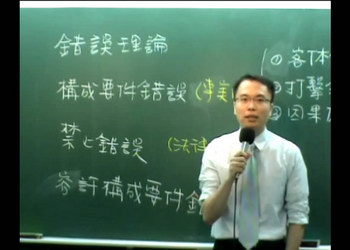 錯誤理論
構成要件錯誤(事実
禁止錯誤 (法
容許構成要件錯
①客体
②打擊
③因果